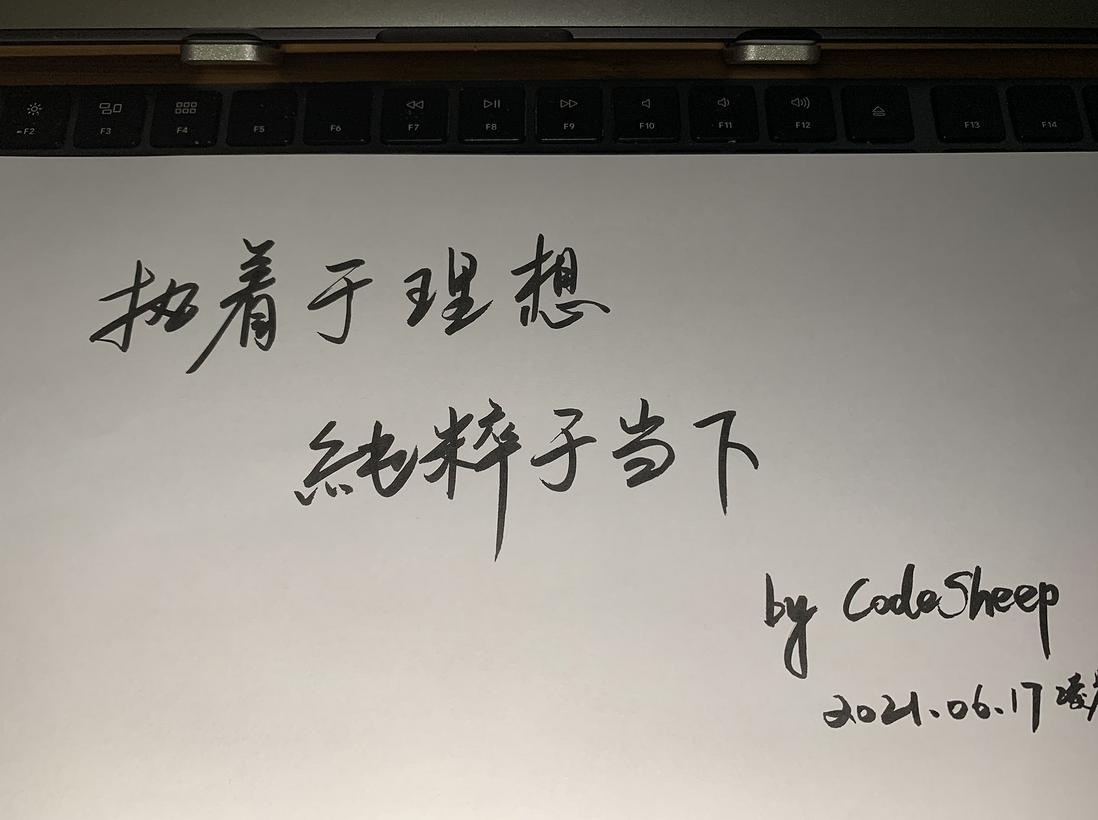 F2 F3 F4 F5 F6 F7 F8 F9 F10 F11 F12 F13 F14
执着于理想
純粹于当下
by CodeSheep
2021.06.17 凌